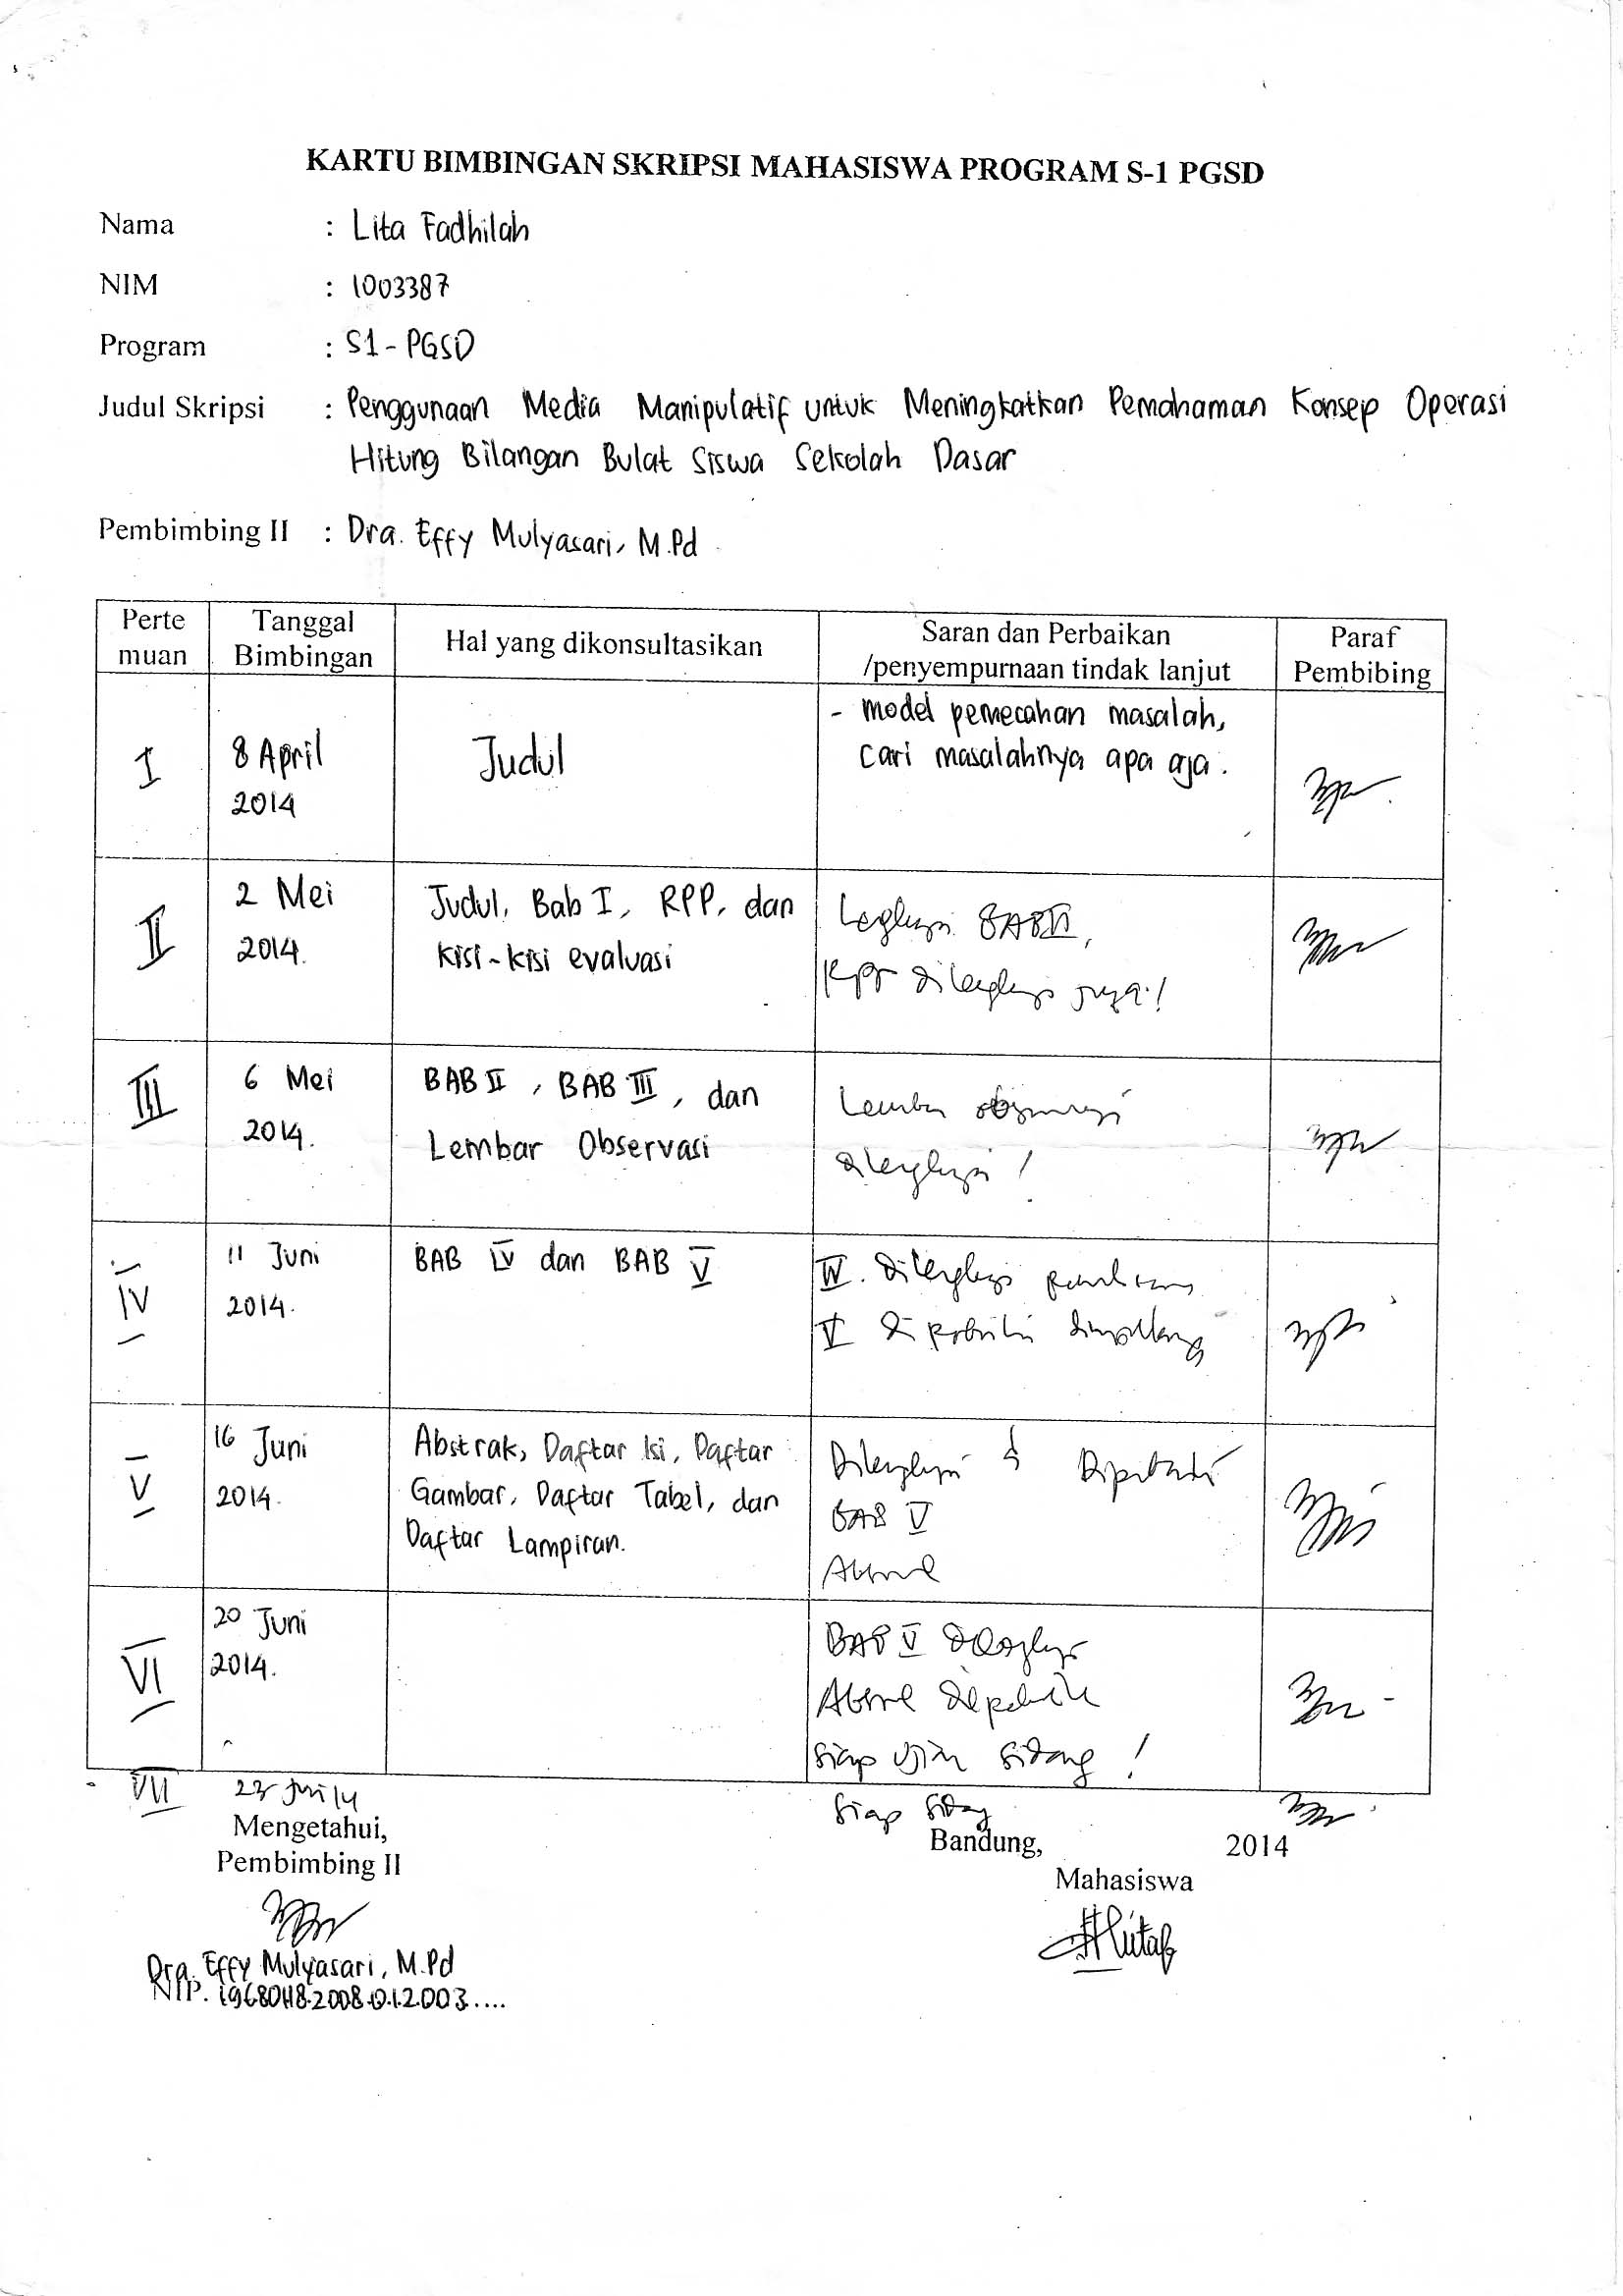 KARTU BIMBINGAN SKRIPSI MAHASISWA PROGRAM S-1 PGSD
Nama : Lita Fadhilah
NIM : 1003387
Program : S1 - PGSD
Judul Skripsi : Penggunaan Media Manipulatif untuk Meningkatkan Pemahaman Konsep Operasi
Hitung Bilangan Bulat Siswa Sekolah Dasar
Pembimbing II : Dra. Effy Mulyasari, M.Pd
Perte muan
Tanggal Bimbingan
Hal yang dikonsultasikan
Saran dan Perbaikan
/penyempurnaan tindak lanjut
Paraf
Pembibing
I
8 April
2014
Judul
- model pemecahan masalah,
cari masalahnya apa aja.
II
2 Mei
2014.
Judul, Bab I, RPP, dan
kisi-kisi evaluasi
Lengkapi BAB II,
dilengkapi juga!
III
6 Mei
2014.
BAB II, BAB III, dan
Lembar Observasi
Lembar observasi
dilengkapi!
IV
11 Juni
2014.
BAB IV dan BAB V
IV. Dilengkapi
V diperbaiki
V
16 Juni
2014.
Abstrak, Daftar Isi, Daftar
Gambar, Daftar Tabel, dan
Daftar Lampiran.
Dilengkapi & Diperbaiki
BAB V
Abstrak
VI
20 Juni
2014.
BAB V dilengkapi
Abstrak diperbaiki
Siap Ujian Sidang!
VII
Siap Sidang
Mengetahui,
Pembimbing II
Bandung, 2014
Mahasiswa
Dra. Effy Mulyasari, M.Pd
NIP.